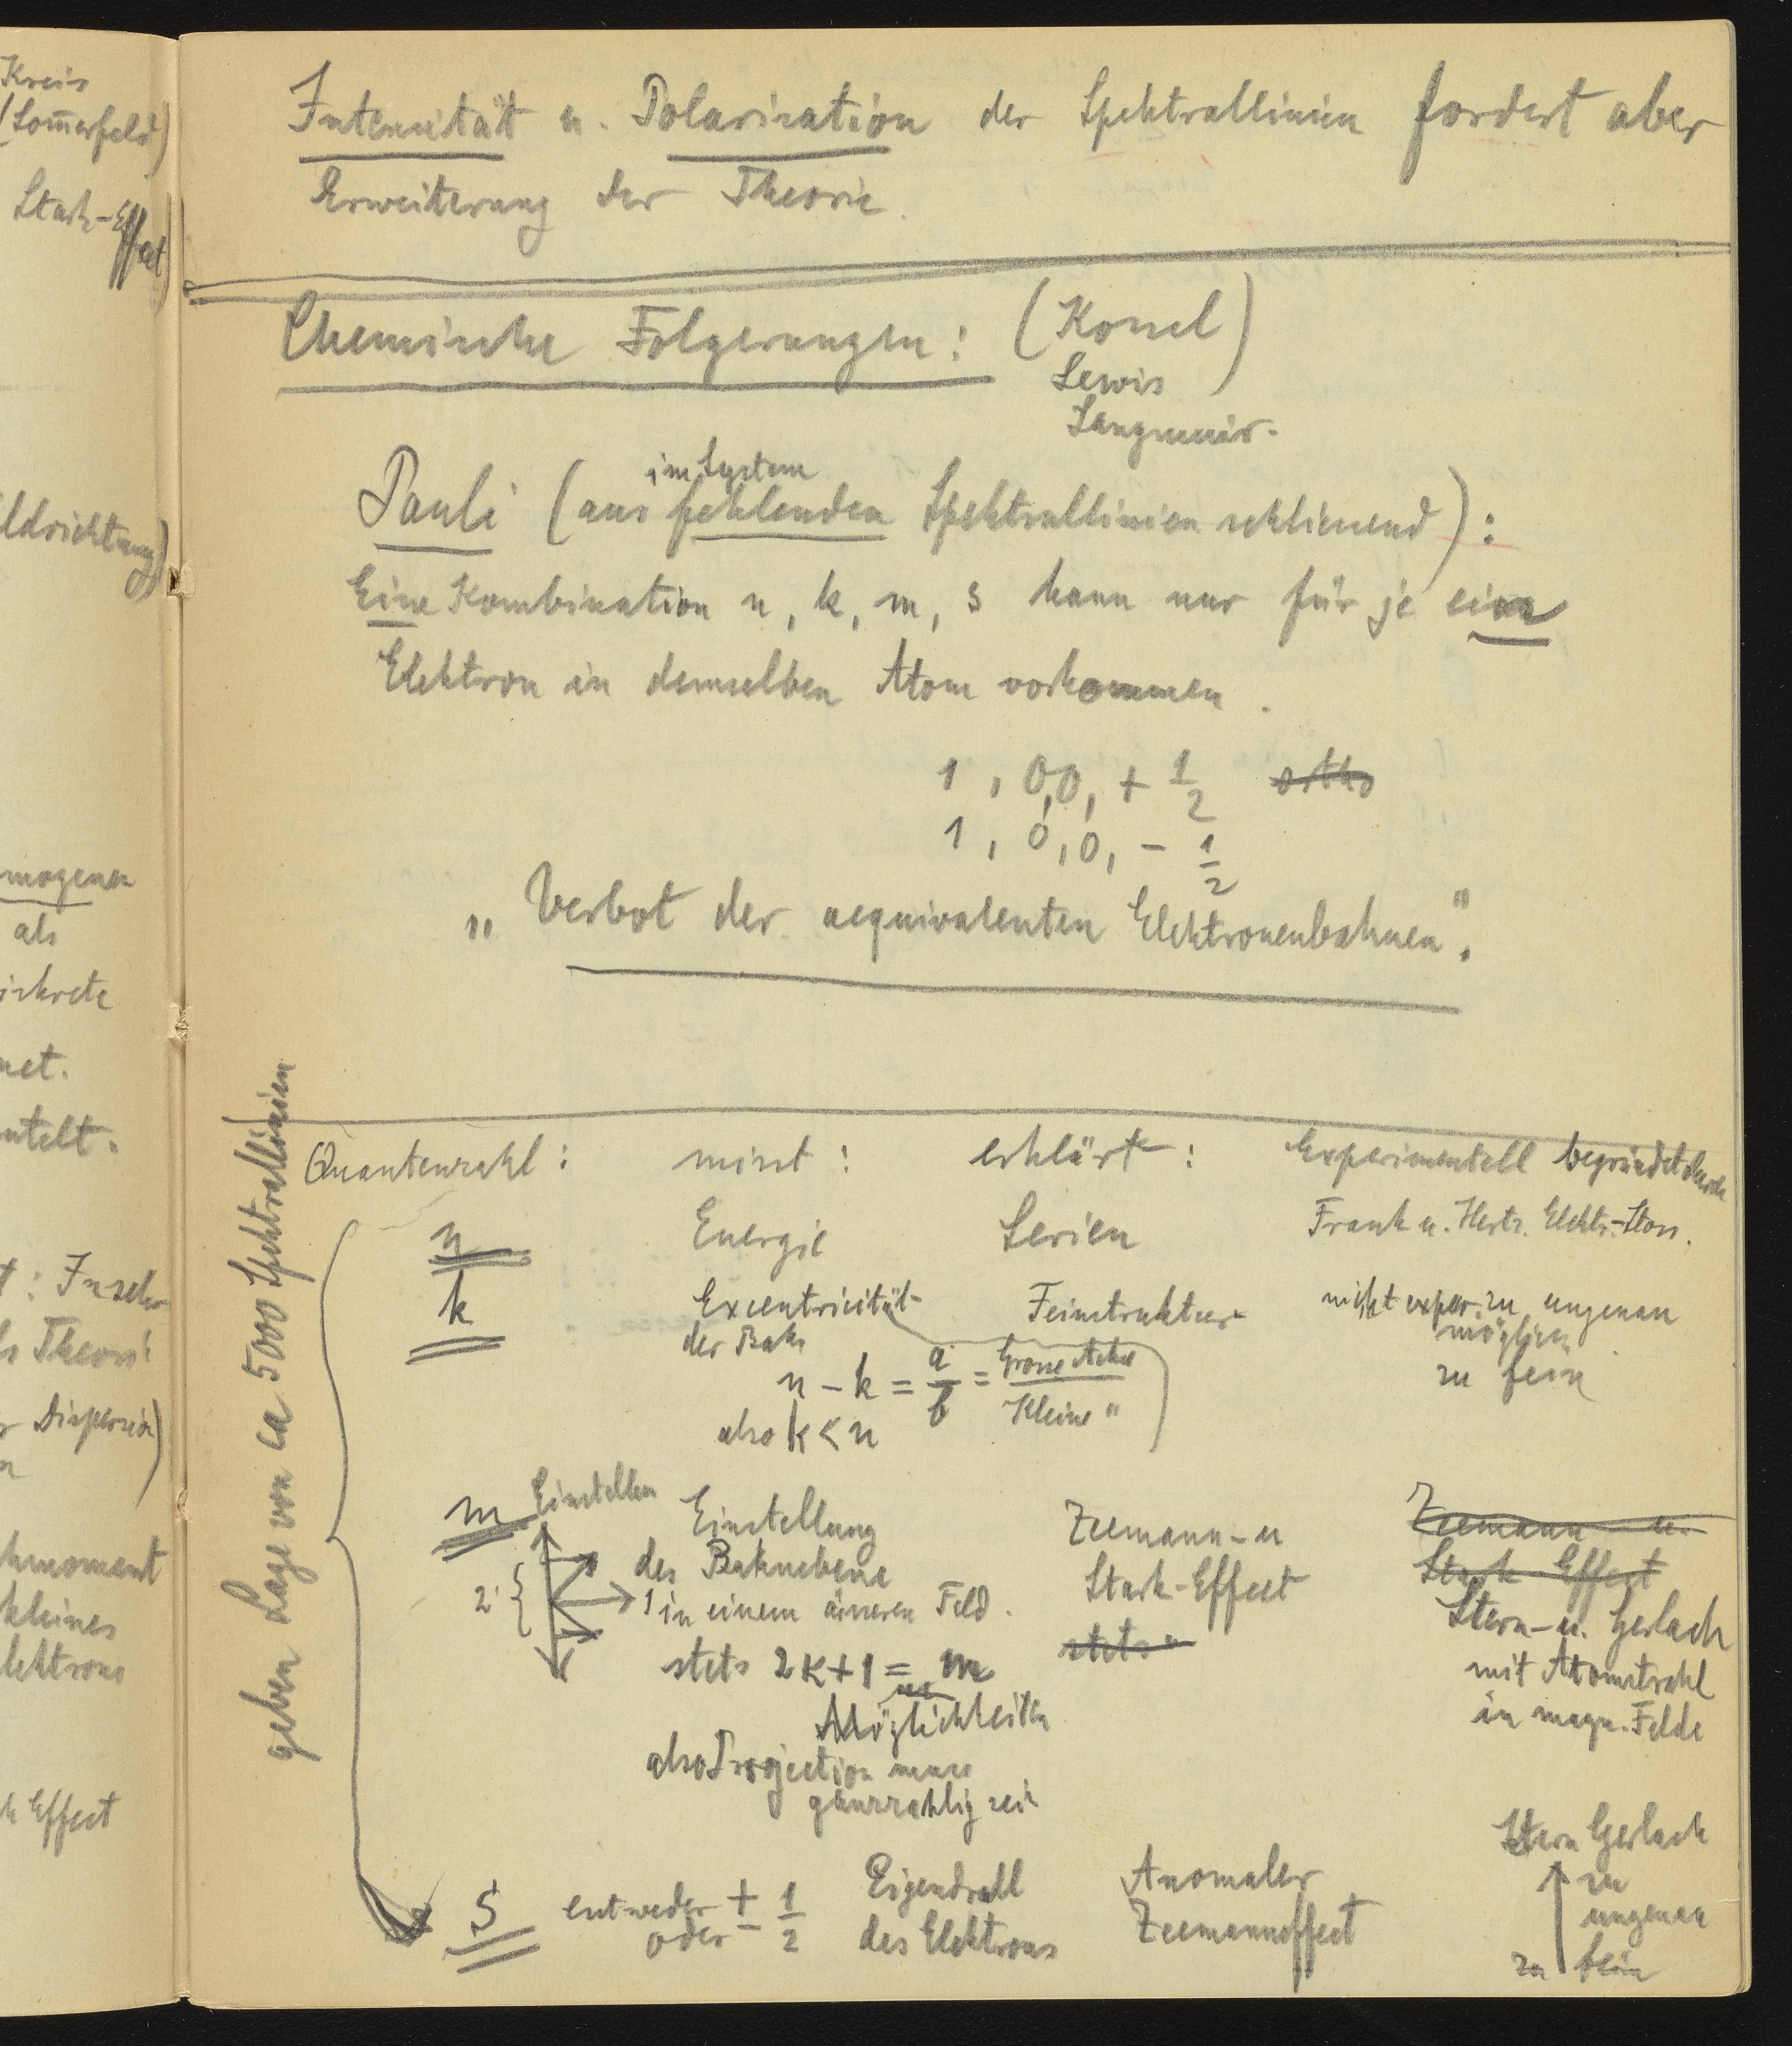 Kreis
(Som̅erfeld)
Stark-Effect)
ldrichtung)
mogenen
als
iskrete
net.
ntelt.
t: Insel
s Theori
r Dispersion)
n
hmoment
kleines
lektrons
k Effect
Intensität u. Polarisation der Spektrallinien fordert aber
Erweiterung der Theorie.
Chemische Folgerungen: (Kossel)
Lewis
Langmuir.
im System
Pauli (aus fehlenden Spektrallinien schliessend):
Eine Kombination n, k, m, s kann nur für je ein
Elektron in demselben Atom vorkommen.
1, 0,0, + 1/2 ortho
1, 0,0, - 1/2
„Verbot der aequivalenten Elektronenbahnen".
geben Lage von ca 5000 Spektrallinien
Quantenzahl: misst: erklärt: Experimentell begründet durch
n Energie Serien Frank u. Hertz. Elektr.-Stoss.
k Excentricität Feinstruktur nicht exper. zu ungenau
der Bahn möglich
n - k = a/b = Grosse Achse / Kleine " zu fein
also k < n
m Einstellen Einstellung Zeemann-u Zeemann- u.
der Bahnebene Stark-Effect Stark-Effect
2 { 1 in einem äusseren Feld. Stern-u. Gerlach
stets 2k+1 = m stets mit Atomstrahl
Möglichkeiten in magn. Felde
also Projection muss
ganzzahlig sein
Stern Gerlach
S entweder + 1/2 Eigendrall Anomaler zu
oder - des Elektrons Zeemanneffect ungenau
zu fein